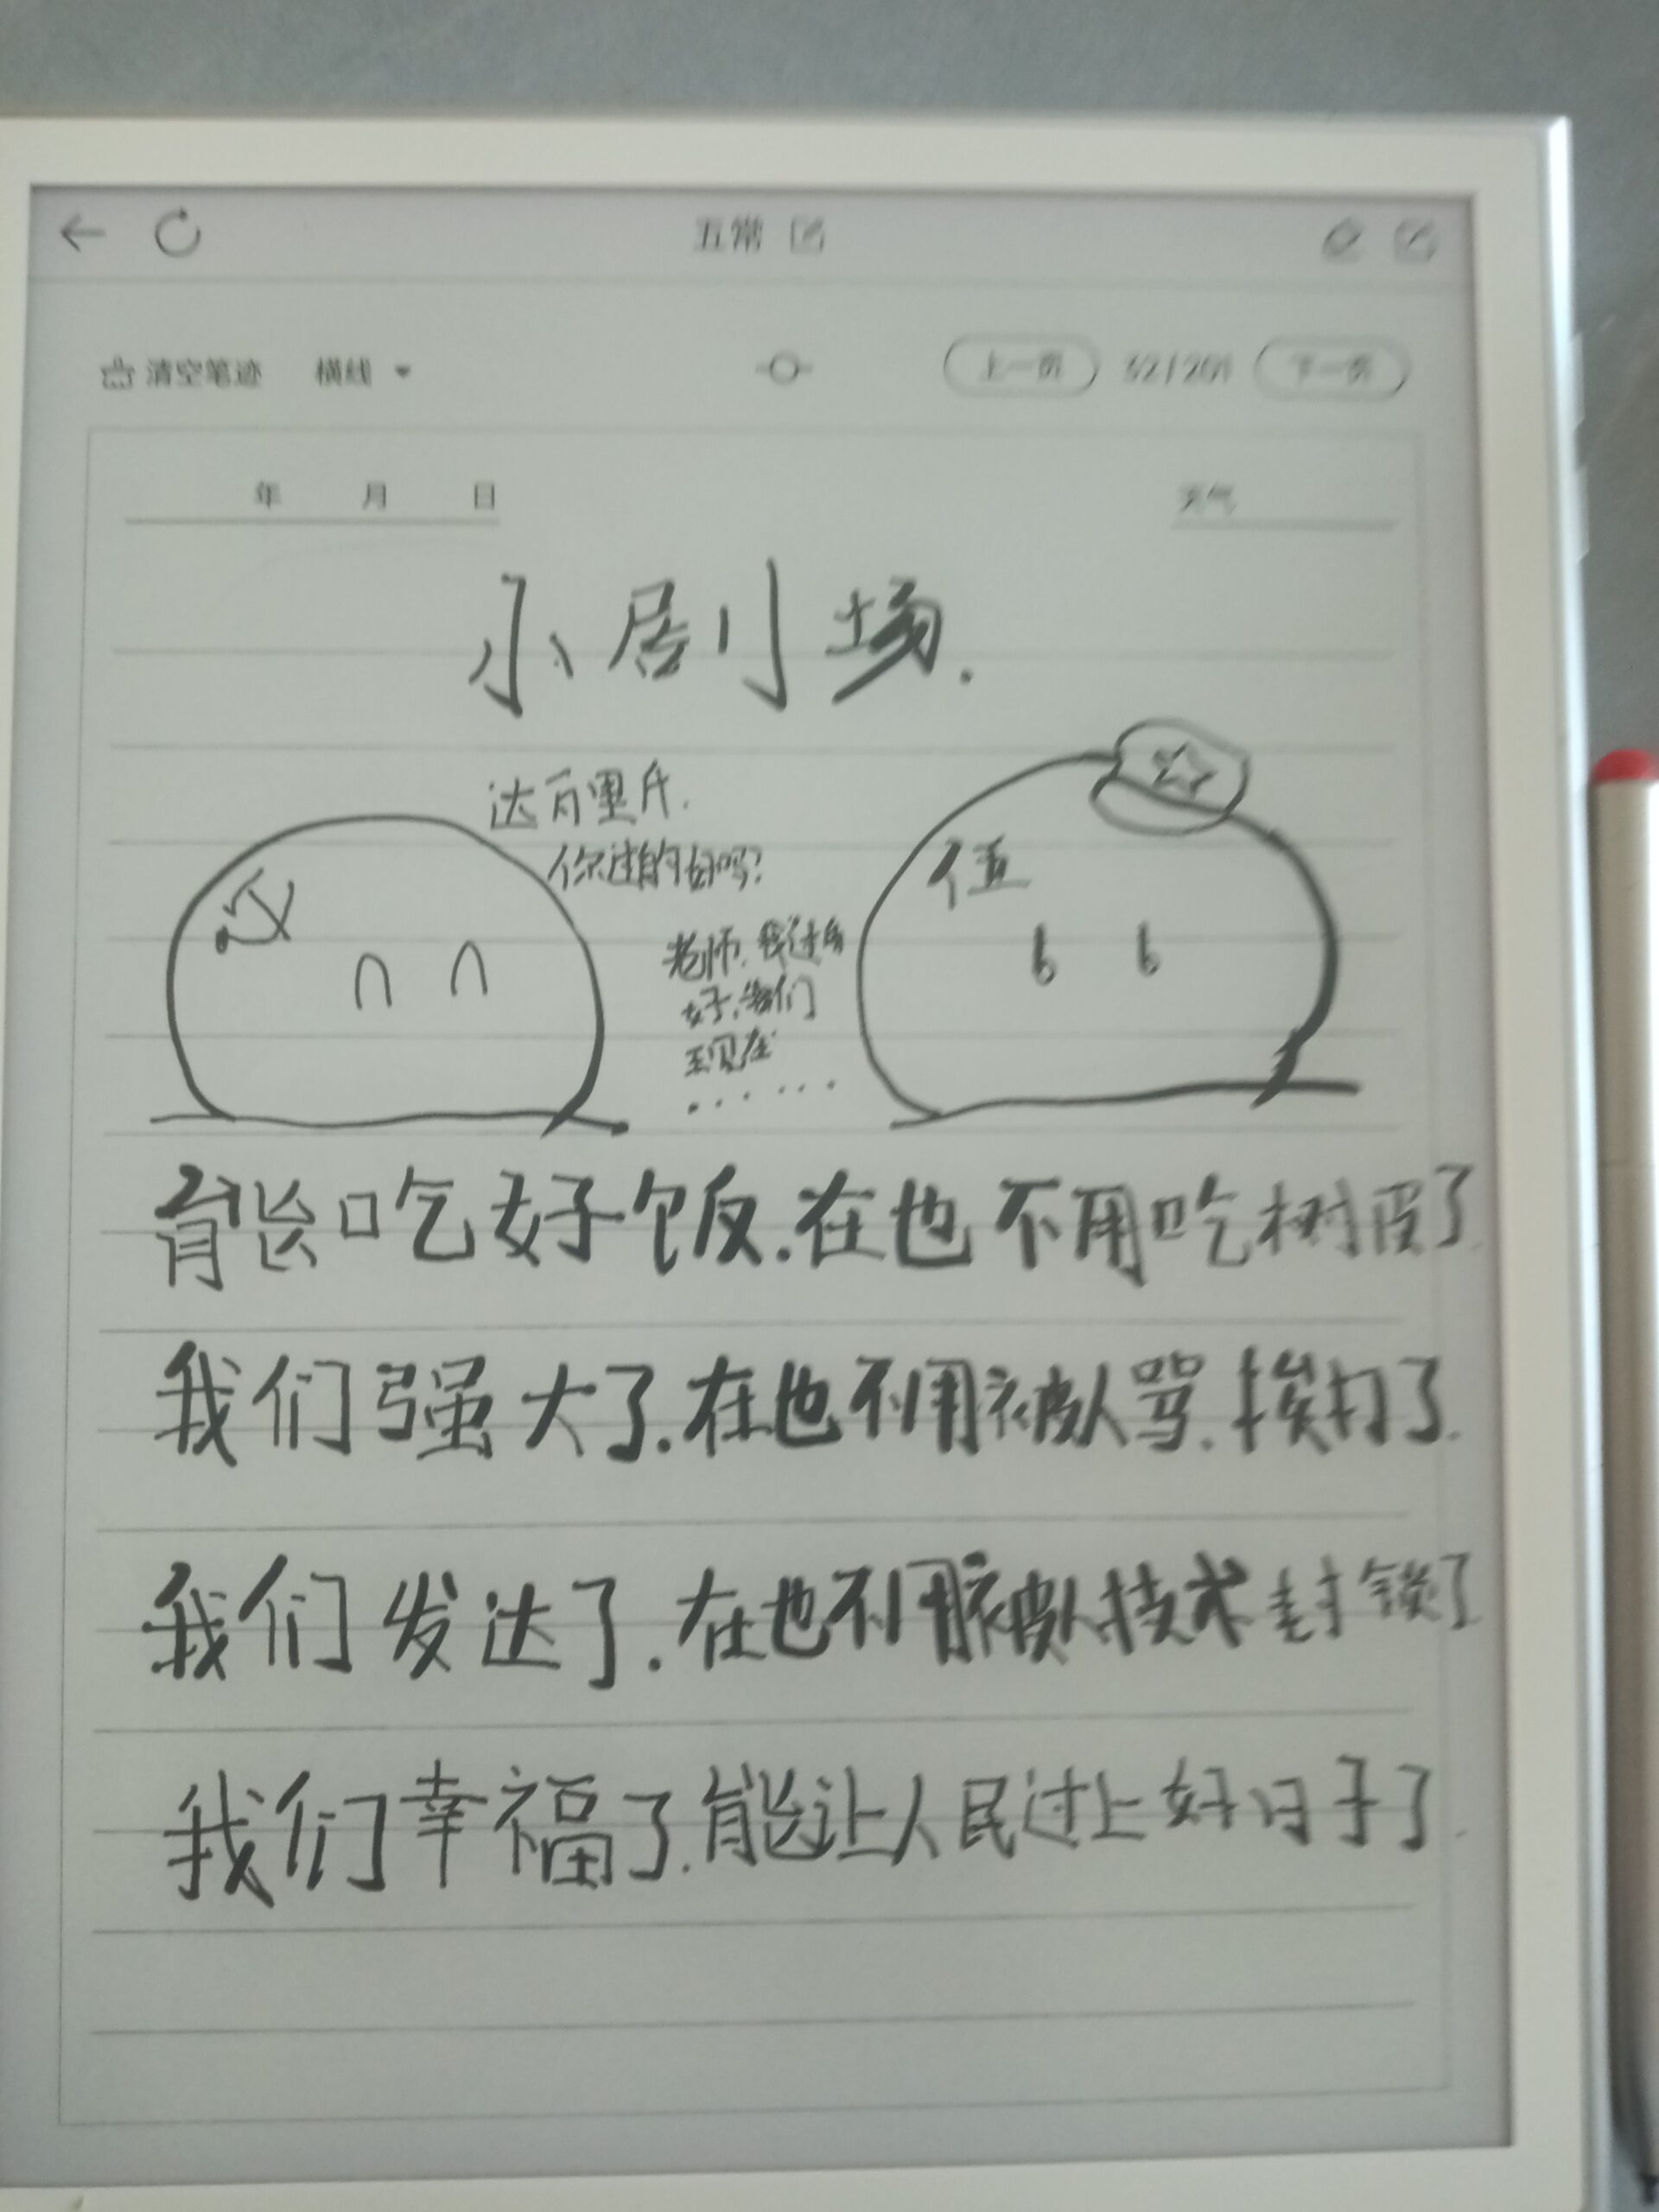 五常
清空笔迹 横线 上一页 32/201 下一页
年 月 日 天气
小剧场.
达瓦里氏.
你过的好吗?
伍
老师.我过的
好.我们
现在
......
能吃好饭.在也不用吃树皮了.
我们强大了.在也不用被人骂.挨打了.
我们发达了.在也不用被人技术封锁了
我们幸福了.能让人民过上好日子了.